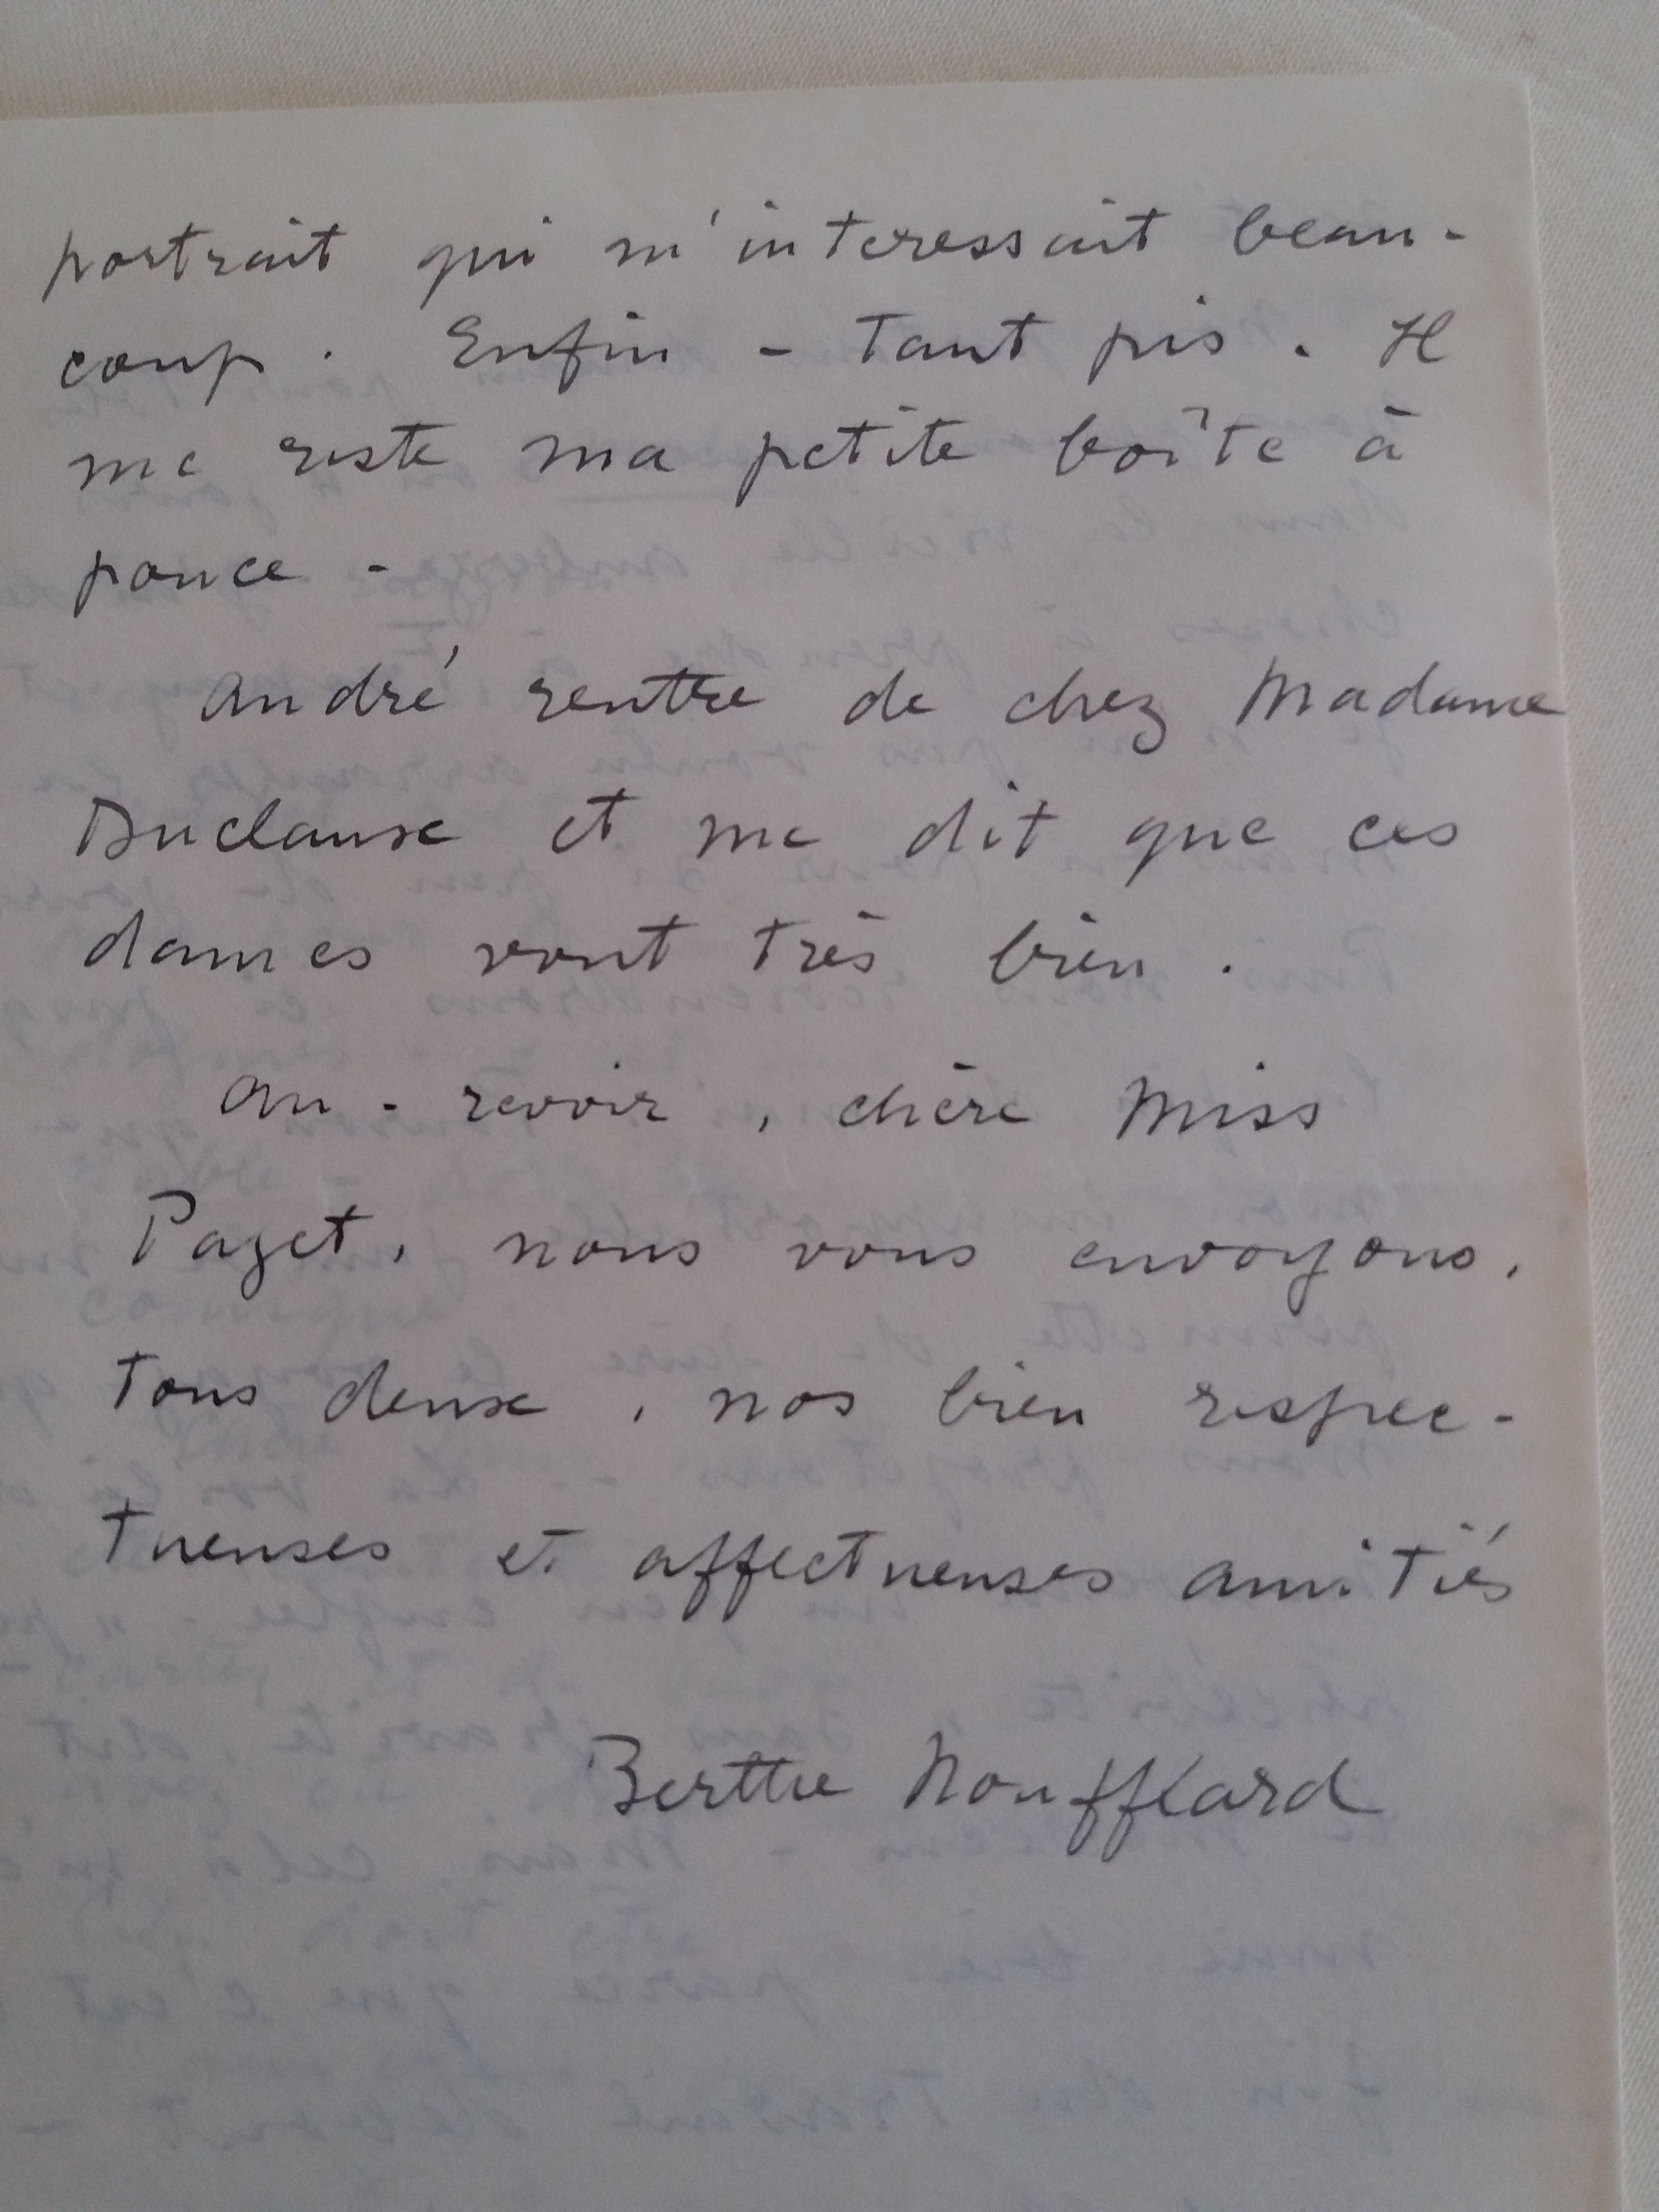 portrait qui m'interessait beau-
coup. Enfin - Tant pis. Il
me reste ma petite boîte à
pouce -
André rentre de chez Madame
Duclaux et me dit que ces
dames vont très bien.
Au-revoir, chère Miss
Paget, nous vous envoyons,
tous deux, nos bien respec-
tueuses et affectueuses amitiés
Berthe Noufflard